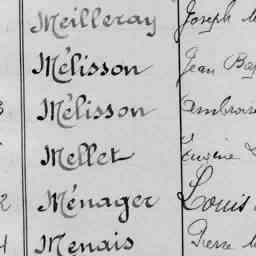 Meilleray Joseph
Mélisson Jean Bap
3 Mélisson Ambroise
Mellet Eugène
2 Ménager Louis
4 Menais Pierre